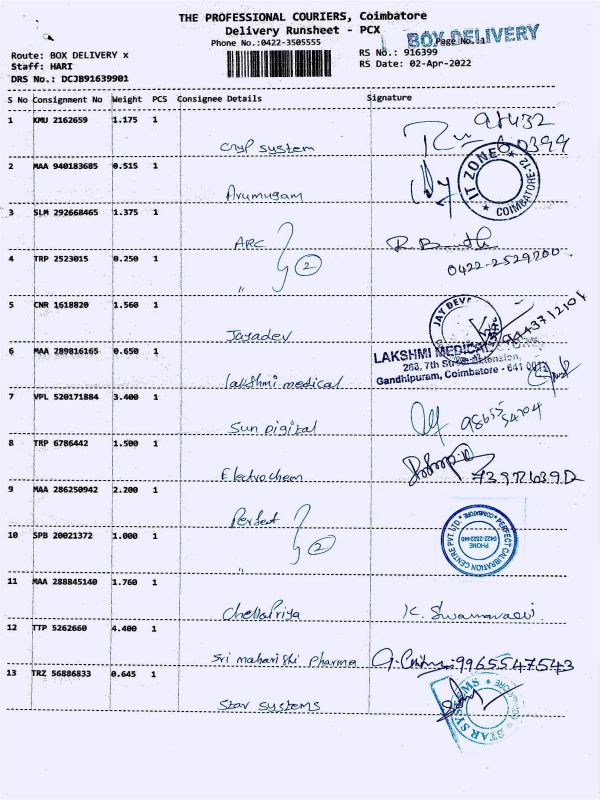 THE PROFESSIONAL COURIERS, Coimbatore
Delivery Runsheet - PCX
Phone No.:0422-3505555
BOX DELIVERY
Page No.:1
Route: BOX DELIVERY x
RS No.: 916399
Staff: HARI
RS Date: 02-Apr-2022
DRS No.: DCJB91639901
S No Consignment No Weight PCS Consignee Details Signature
1 KMU 2162659 1.175 1
Cryp system
2 MAA 940183685 0.515 1
IT ZONE
COIMBATORE-12
Arumugam
3 SLM 292668465 1.375 1
ARC
4 TRP 2523015 0.250 1
2
0422-2529200
"
5 CNR 1618820 1.560 1
Jayadev
JAY DEV
6 MAA 289816165 0.650 1
LAKSHMI MEDICAL
268, 7th Street Extension,
Gandhipuram, Coimbatore - 641 012
Lakshmi medical
7 VPL 520171884 3.400 1
Sun Digital
8 TRP 6786442 1.500 1
Electrochem
9 MAA 286250942 2.200 1
Perfect
10 SPB 20021372 1.000 1
2
PERFECT CALIBRATION CENTRE PVT. LTD.
COIMBATORE
PHONE
0422-2522440
"
11 MAA 288845140 1.760 1
Chellapriya
12 TTP 5262660 4.400 1
Sri maharishi pharma
9965547543
13 TRZ 56886833 0.645 1
Star systems
STAR SYSTEMS